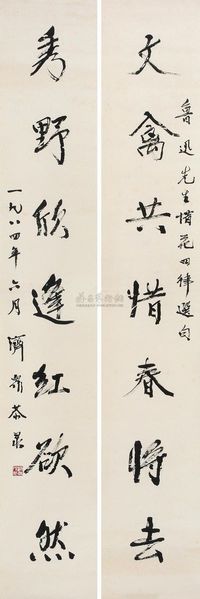 魯迅先生惜花四律選句
文禽共惜春將去
秀野欣逢紅欲然
一九八四年六月 濟 恭录